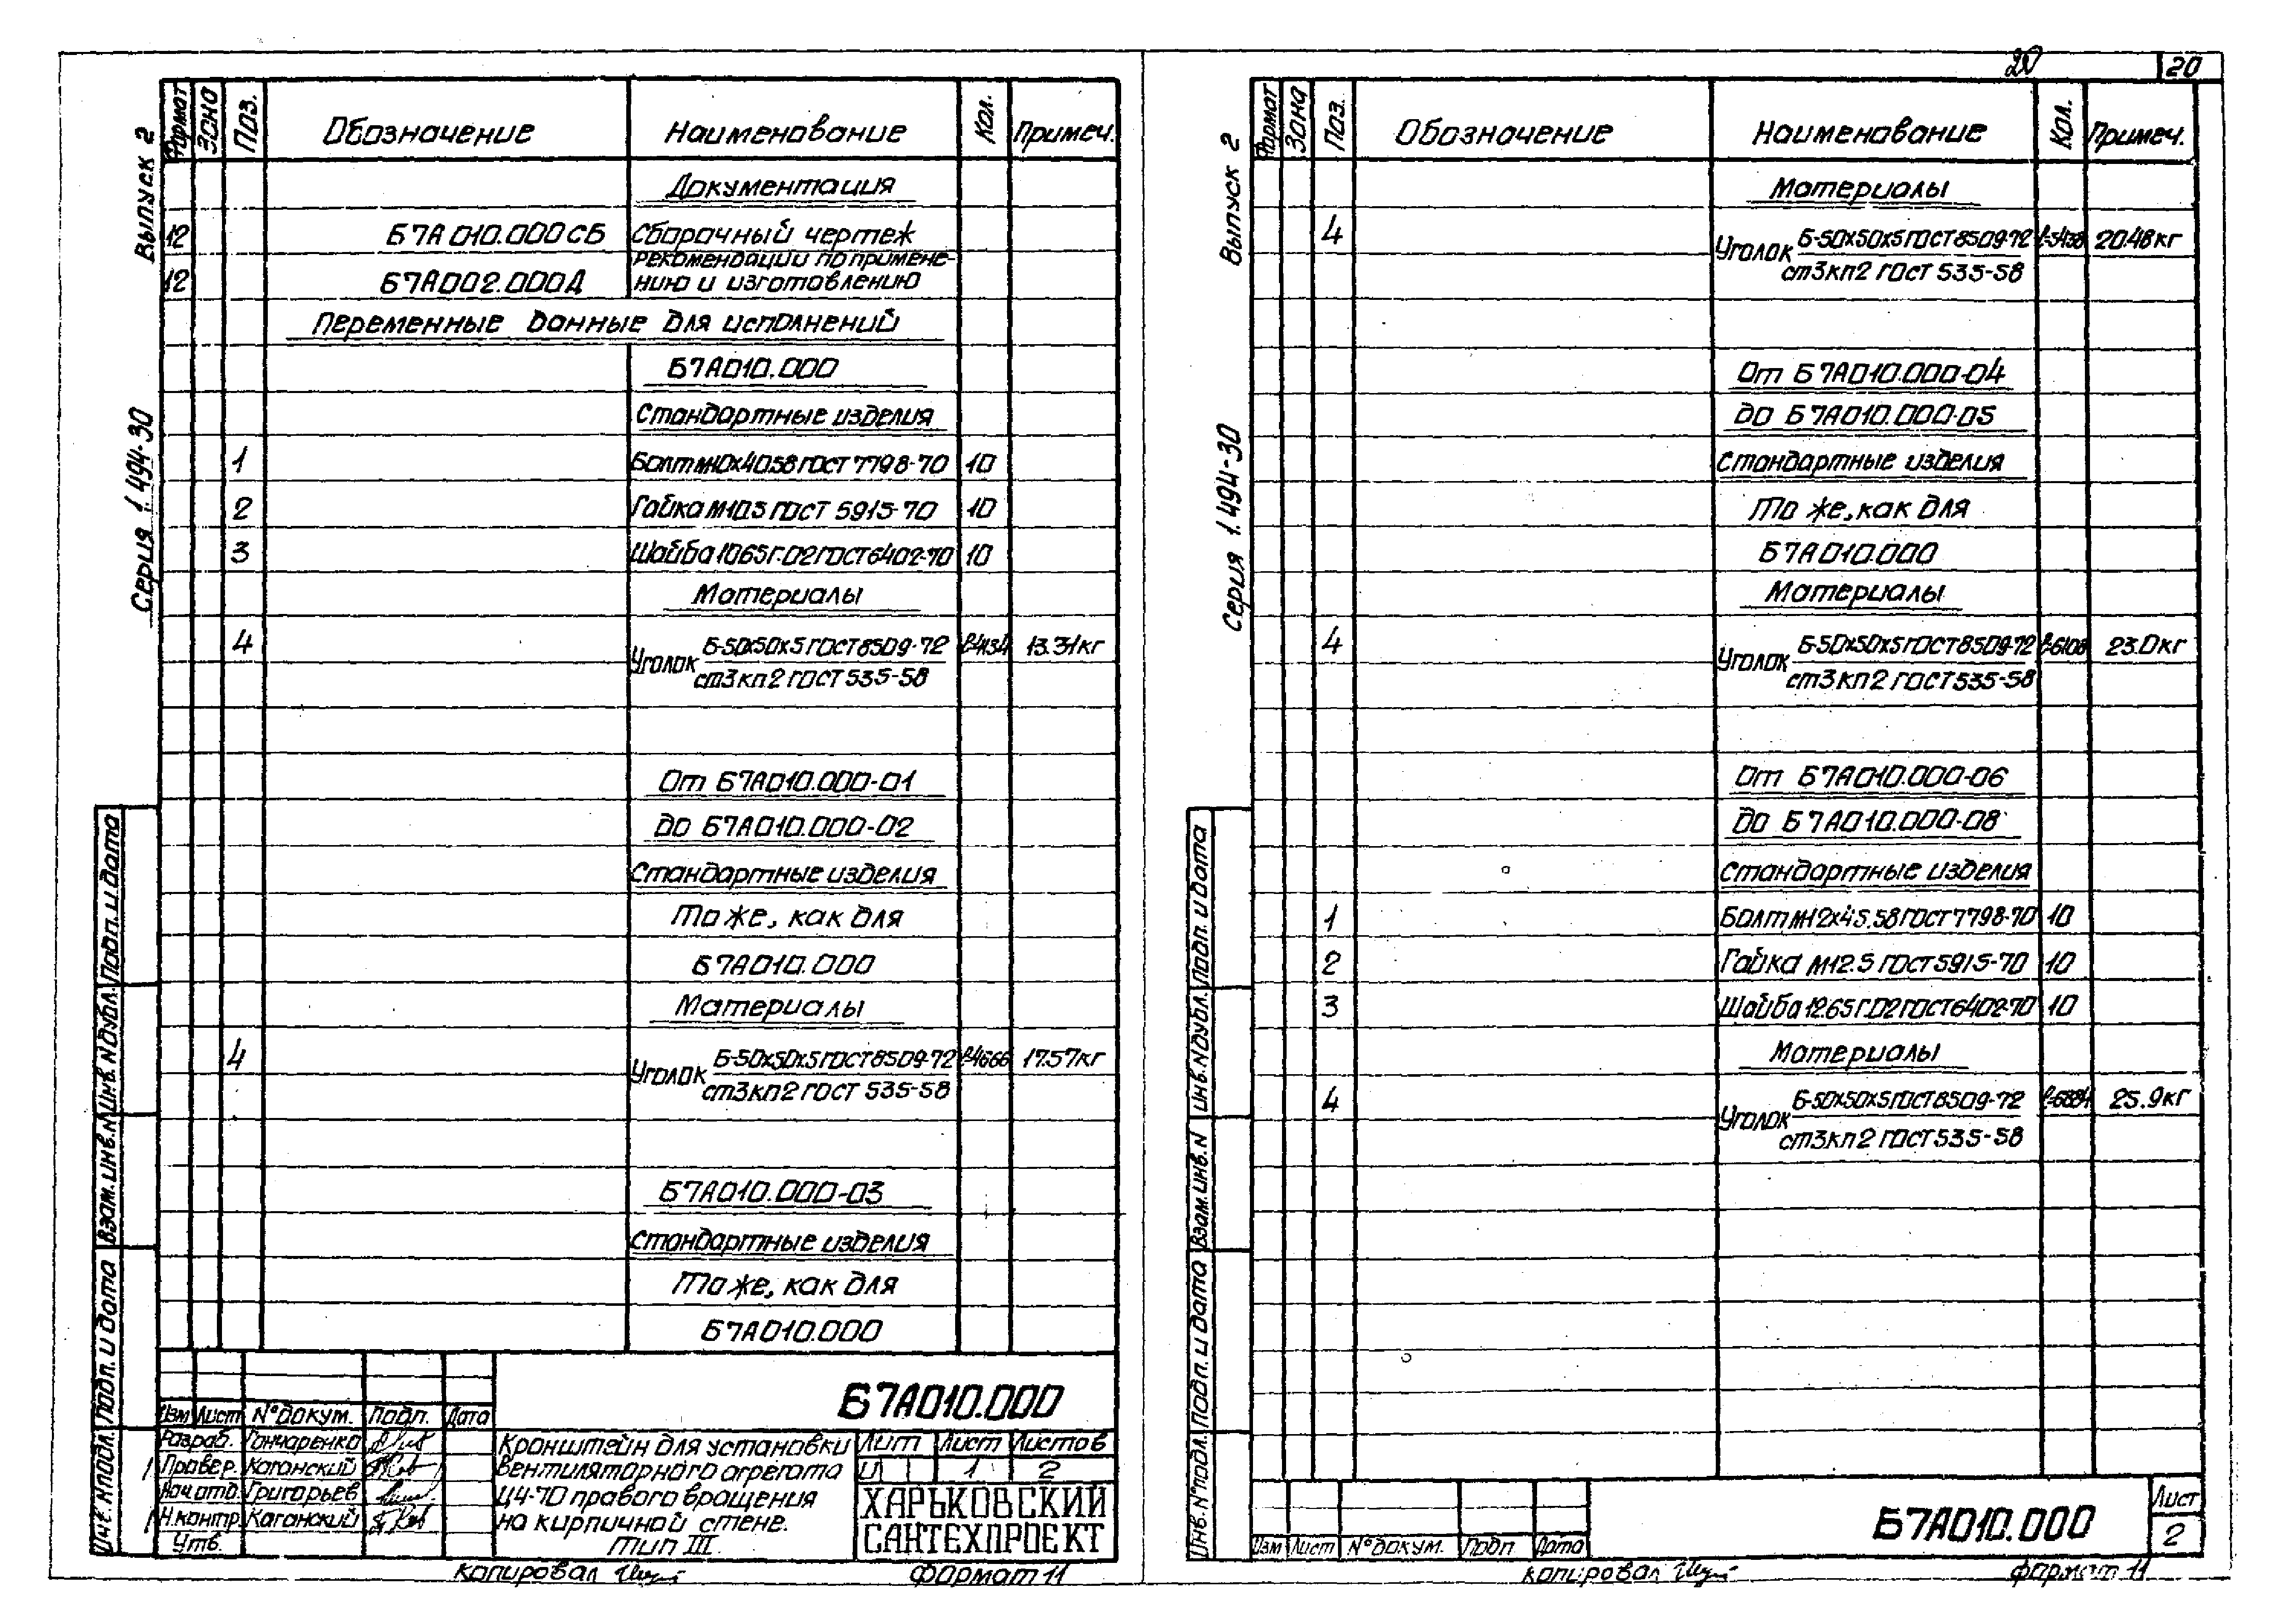 20
20
Выпуск 2
Серия 1.494-30
Формат Зона Поз. Обозначение Наименование Кол. Примеч.
Документация
12 Б7А010.000СБ Сборочный чертеж
Рекомендации по примене-
12 Б7А002.000Д нию и изготовлению
Переменные данные для исполнений
Б7А010.000
Стандартные изделия
1 Болт М10х40.58 ГОСТ 7798-70 10
2 Гайка М10.5 ГОСТ 5915-70 10
3 Шайба 10 65Г.02 ГОСТ 6402-70 10
Материалы
4 Уголок Б-50х50х5 ГОСТ 8509-72 ℓ-4134 13.31кг
ст3кп2 ГОСТ 535-58
От Б7А010.000-01
до Б7А010.000-02
Стандартные изделия
То же, как для
Б7А010.000
Материалы
4 Уголок Б-50х50х5 ГОСТ 8509-72 ℓ-4666 17.57кг
ст3кп2 ГОСТ 535-58
Б7А010.000-03
Стандартные изделия
То же, как для
Б7А010.000
Подп. и дата
Инв. N дубл.
Взам. инв. N
Подп. и дата
Инв. N подл.
Б7А010.000
Изм Лист N° докум. Подп. Дата
Разраб. Гончаренко
Провер. Каганский
Нач отд. Григорьев
Н.контр. Каганский
Утв.
Кронштейн для установки
вентиляторного агрегата
Ц4-70 правого вращения
на кирпичной стене.
Тип III.
Лит Лист Листов
И 1 2
ХАРЬКОВСКИЙ
САНТЕХПРОЕКТ
Копировал
Формат 11
Выпуск 2
Серия 1.494-30
Формат Зона Поз. Обозначение Наименование Кол. Примеч.
Материалы
4 Уголок Б-50х50х5 ГОСТ 8509-72 ℓ-5438 20.48кг
ст3кп2 ГОСТ 535-58
От Б7А010.000-04
до Б7А010.000-05
Стандартные изделия
То же, как для
Б7А010.000
Материалы
4 Уголок Б-50х50х5 ГОСТ 8509-72 ℓ-6108 23.0кг
ст3кп2 ГОСТ 535-58
От Б7А010.000-06
до Б7А010.000-08
Стандартные изделия
1 Болт М12х45.58 ГОСТ 7798-70 10
2 Гайка М12.5 ГОСТ 5915-70 10
3 Шайба 12.65Г.02 ГОСТ 6402-70 10
Материалы
4 Уголок Б-50х50х5 ГОСТ 8509-72 ℓ-6884 25.9кг
ст3кп2 ГОСТ 535-58
Подп. и дата
Инв. N дубл.
Взам. инв. N
Подп. и дата
Инв. N° подл.
Изм Лист N° докум. Подп Дата
Б7А010.000
Лист
2
Копировал
Формат 11